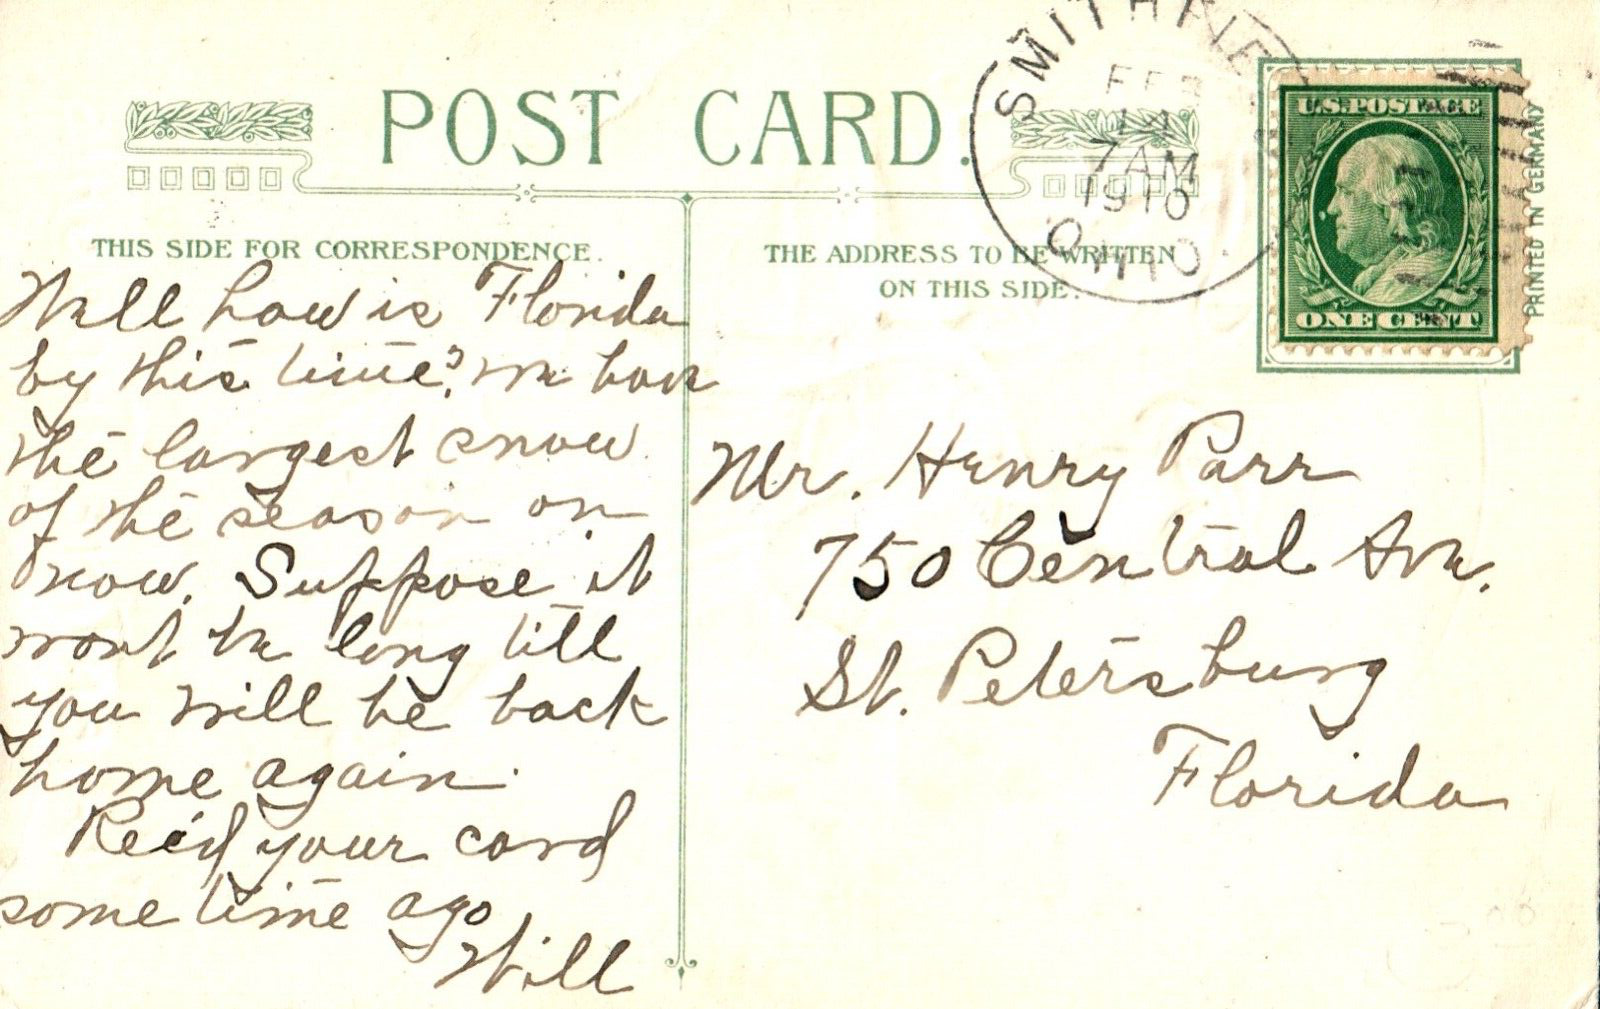 POST CARD.
THIS SIDE FOR CORRESPONDENCE.
Well how is Florida
by this time? we have
the largest snow
of the season on
now. Suppose it
wont be long till
you will be back
home again.
Rec'd your card
some time ago
Will
THE ADDRESS TO BE WRITTEN
ON THIS SIDE.
Mr. Henry Parr
750 Central Ave.
St. Petersburg
Florida
FEB
14
7 AM
1910
OHIO.
U.S. POSTAGE
ONE CENT
PRINTED IN GERMANY